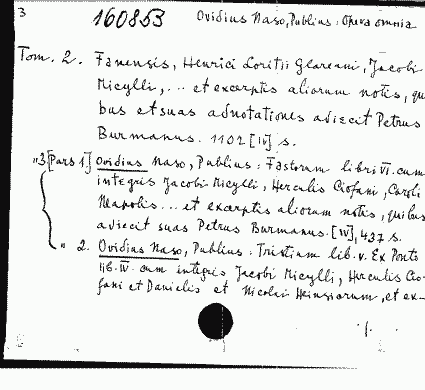 3 160853 Ovidius Naso, Publius: Opera omnia
Tom. 2. Fanensis, Henrici Loritii Glareani, Jacobi
Micylli, ... et excerptis aliorum notis, qui
bus et suas adnotationes adiecit Petrus
Burmanus. 1102 [IV] s.
" 3. [Pars 1.] Ovidius Naso, Publius: Fastorum libri VI. cum
integris Jacobi Micylli, Herculis Ciofani, Caroli
Neapolis ... et excerptis aliorum notis, quibus
adiecit suas Petrus Burmanus. [IV], 437 s.
" 2. Ovidius Naso, Publius: Tristium lib. V. Ex Ponto
lib. IV. cum integris Jacobi Micylli, Herculis Cio-
fani et Danielis et Nicolai Heinsiorum, et ex-
·/·